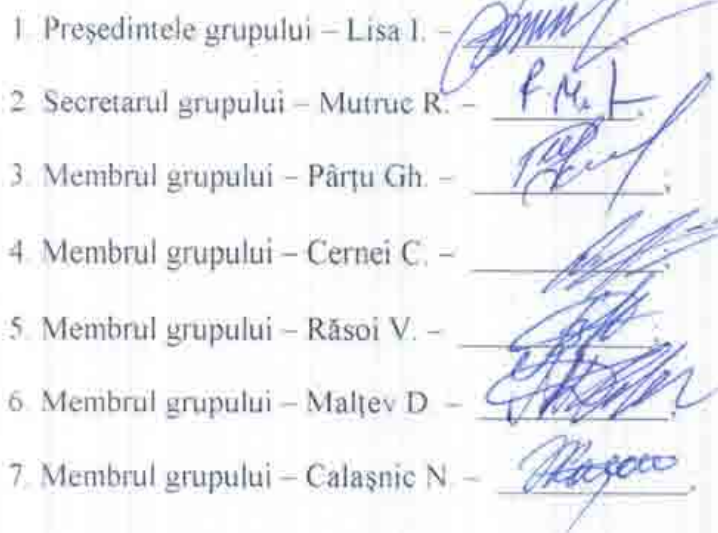 1. Președintele grupului – Lisa I. –
2. Secretarul grupului – Mutruc R. –
3. Membrul grupului – Pârțu Gh. –
4. Membrul grupului – Cernei C. –
5. Membrul grupului – Răsoi V. –
6. Membrul grupului – Malțev D –
7. Membrul grupului – Calașnic N. –